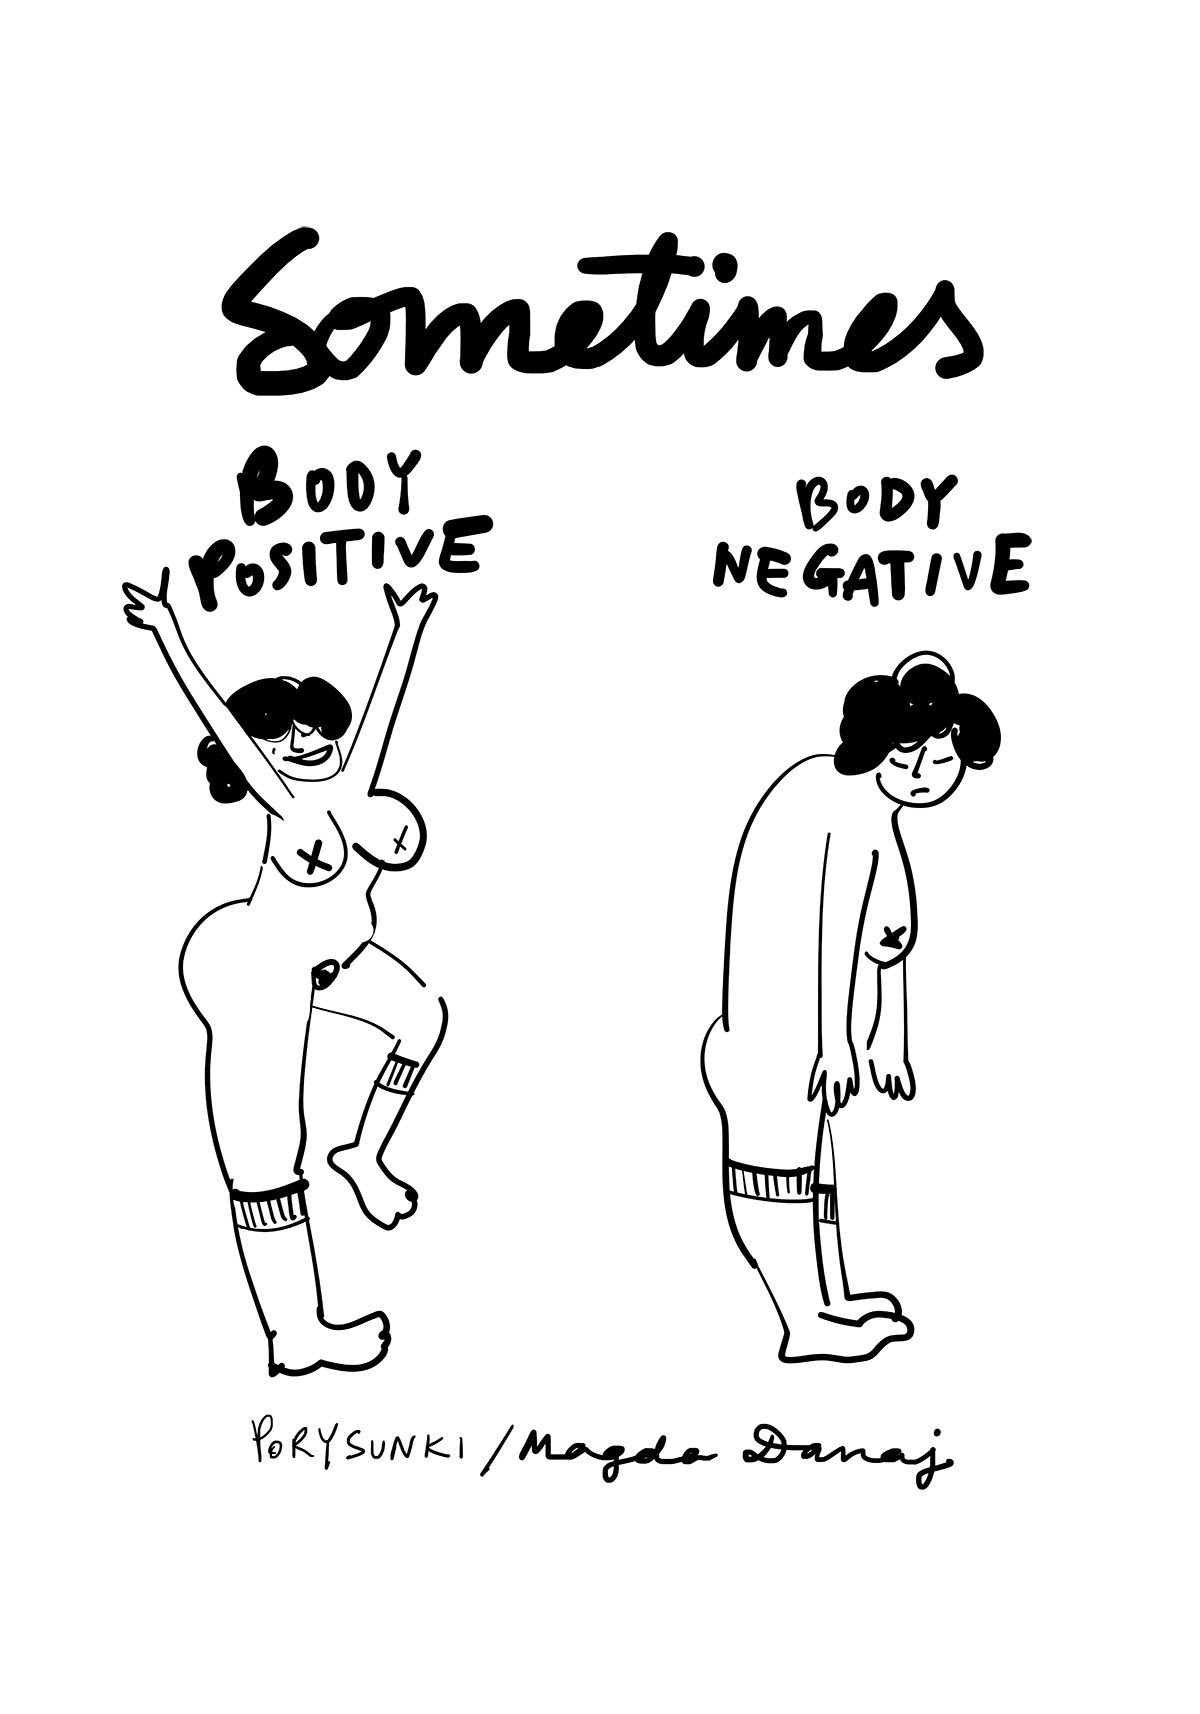 Sometimes
BODY
POSITIVE
BODY
NEGATIVE
PORYSUNKI / Magda Danaj